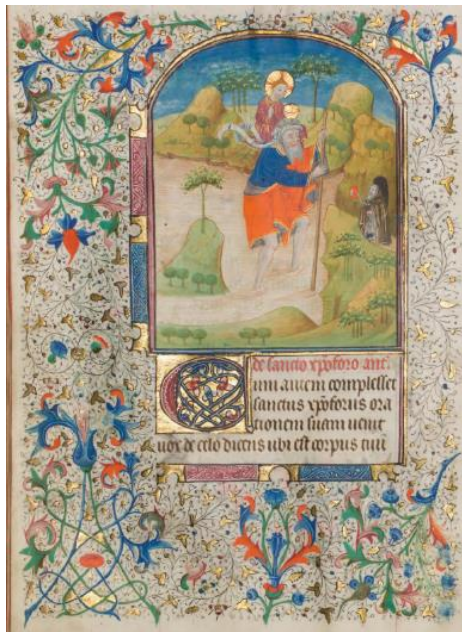 de sancto xpoforo ant.
Cum autem complesset
sanctus xpoforus ora
tionem suam venit
vox de celo dicens ubi est corpus tuu